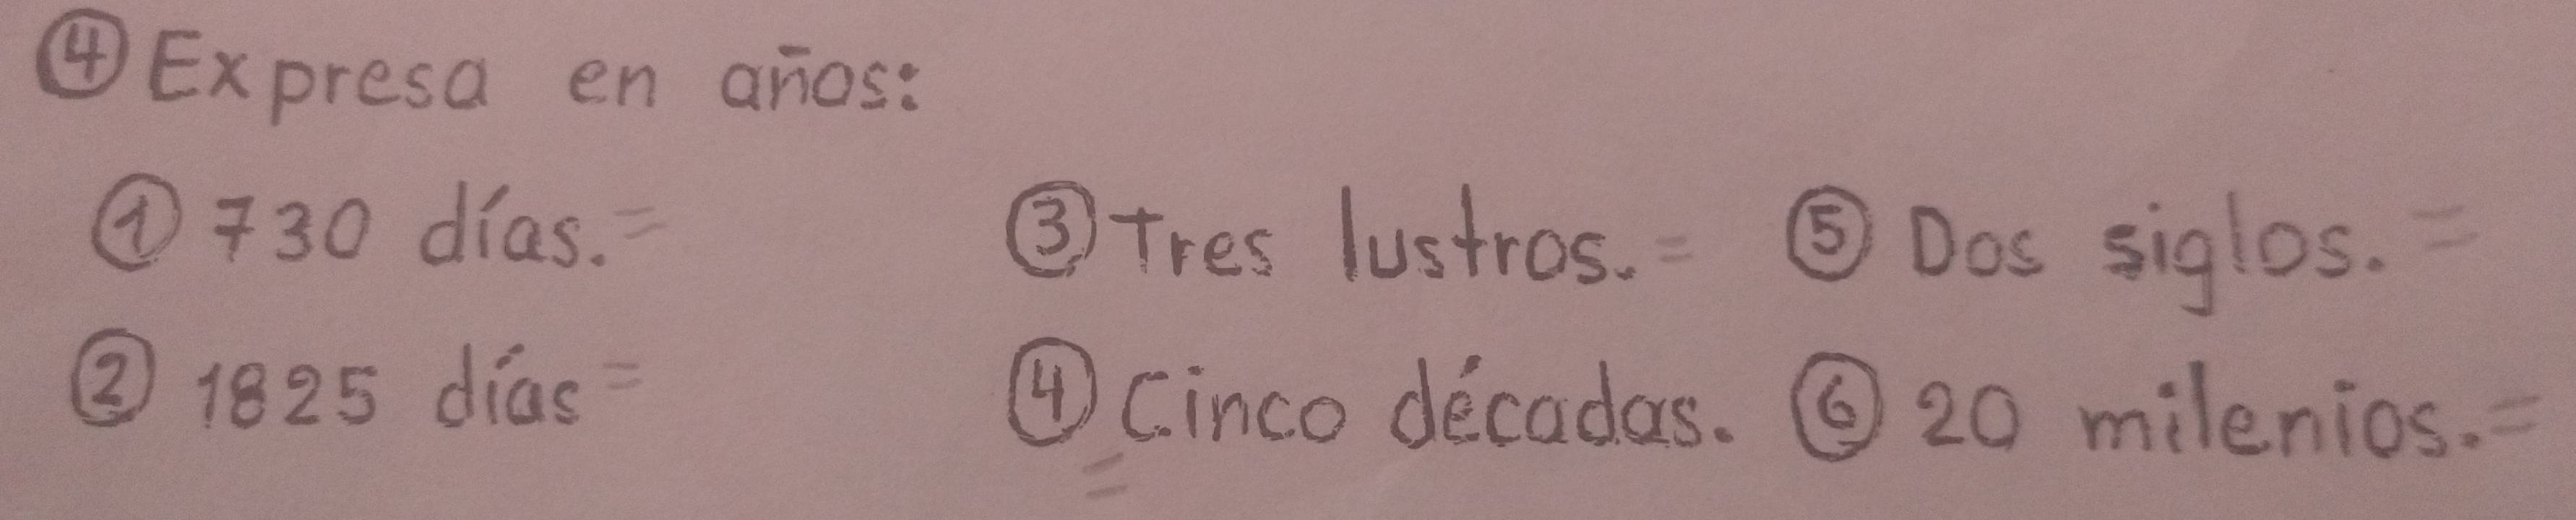 ④ Expresa en años:
① 730 días.= ③ Tres lustros.= ⑤ Dos siglos.=
② 1825 días= ④ Cinco décadas. ⑥ 20 milenios.=
=